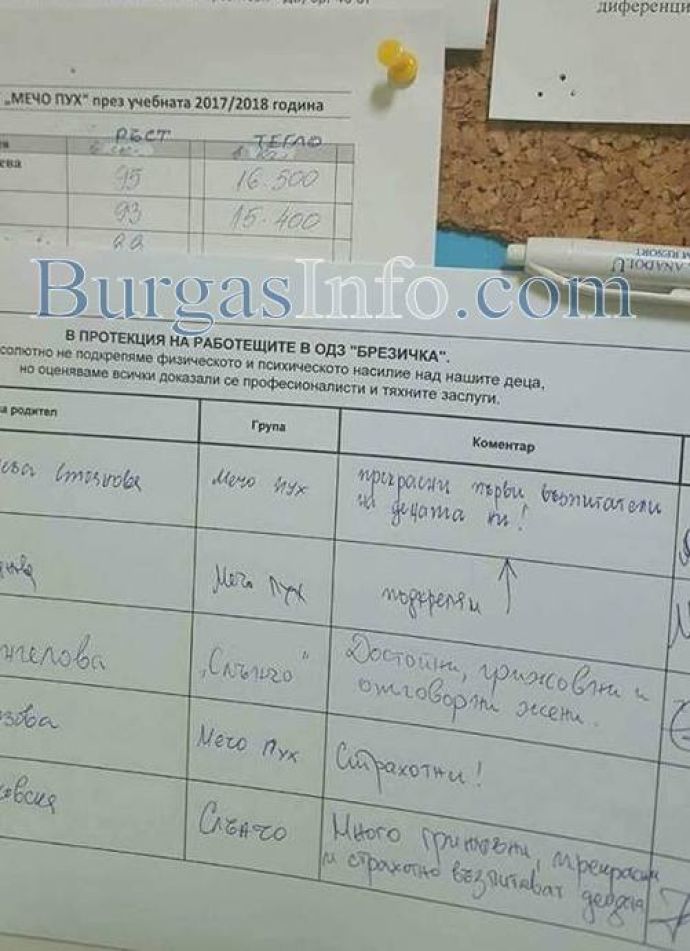 диференци
„МЕЧО ПУХ" през учебната 2017/2018 година
РЪСТ ТЕГЛО
ева 95 16.500
93 15.400
ANADOLU
RESORT
BurgasInfo.com
В ПРОТЕКЦИЯ НА РАБОТЕЩИТЕ В ОДЗ "БРЕЗИЧКА".
солютно не подкрепяме физическото и психическото насилие над нашите деца,
но оценяваме всички доказали се професионалисти и тяхните заслуги.
на родител Група Коментар
Мечо Пух прекрасни първи възпитатели
на децата ни!
Мечо Пух подкрепям
нгелова „Слънчо" Достойни, грижовни и
отговорни жени.
зова Мечо Пух Страхотни!
Слънчо Много грижовни, прекрасни
и страхотно възпитават децата